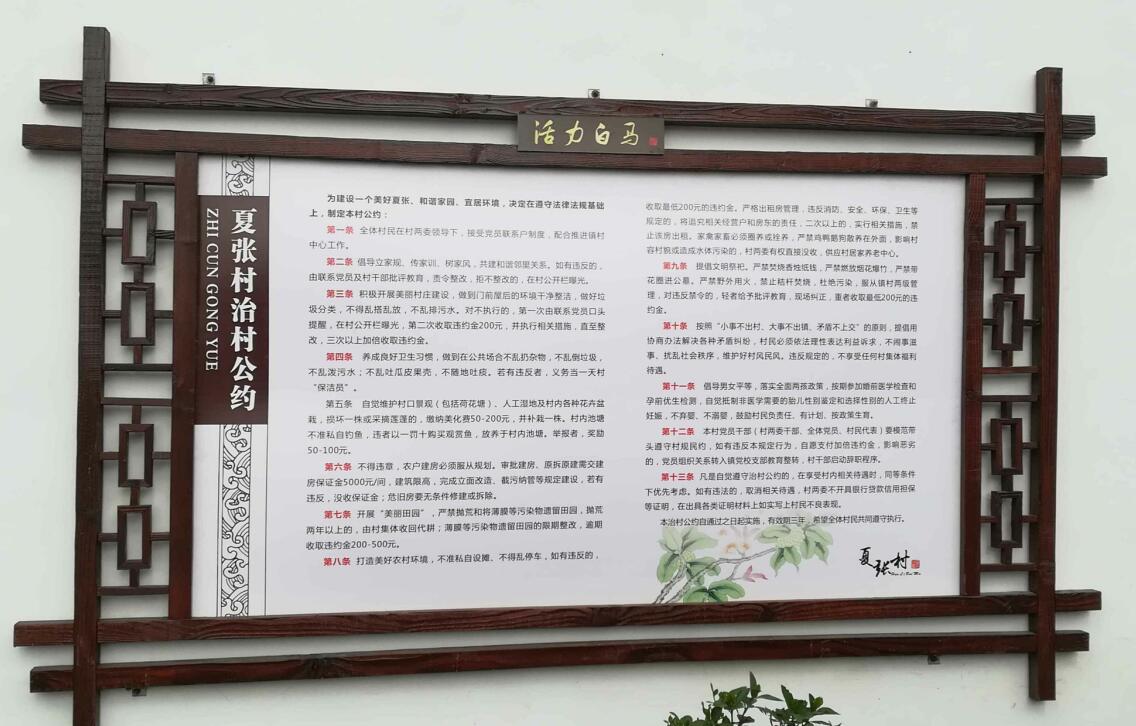 活力白马
夏张村治村公约
ZHI CUN GONG YUE
为建设一个美好夏张、和谐家园、宜居环境，决定在遵守法律法规基础
上，制定本村公约：
第一条 全体村民在村两委领导下，接受党员联系户制度，配合推进镇村
中心工作。
第二条 倡导立家规、传家训、树家风，共建和谐邻里关系。如有违反的，
由联系党员及村干部批评教育，责令整改，拒不整改的，在村公开栏曝光。
第三条 积极开展美丽村庄建设，做到门前屋后的环境干净整洁，做好垃
圾分类，不得乱搭乱放，不乱排污水。对不执行的，第一次由联系党员口头
提醒，在村公开栏曝光，第二次收取违约金200元，并执行相关措施，直至整
改，三次以上加倍收取违约金。
第四条 养成良好卫生习惯，做到在公共场合不乱扔杂物，不乱倒垃圾，
不乱泼污水；不乱吐瓜皮果壳，不随地吐痰。若有违反者，义务当一天村
“保洁员”。
第五条 自觉维护村口景观（包括荷花塘）、人工湿地及村内各种花卉盆
栽，损坏一株或采摘莲蓬的，缴纳美化费50-200元，并补栽一株。村内池塘
不准私自钓鱼，违者以一罚十购买观赏鱼，放养于村内池塘。举报者，奖励
50-100元。
第六条 不得违章，农户建房必须服从规划。审批建房、原拆原建需交建
房保证金5000元/间，建筑限高，完成立面改造、截污纳管等规定建设，若有
违反，没收保证金；危旧房要无条件修建或拆除。
第七条 开展“美丽田园”，严禁抛荒和将薄膜等污染物遗留田园，抛荒
两年以上的，由村集体收回代耕；薄膜等污染物遗留田园的限期整改，逾期
收取违约金200-500元。
第八条 打造美好农村环境，不准私自设摊、不得乱停车，如有违反的，
收取最低200元的违约金。严格出租房管理，违反消防、安全、环保、卫生等
规定的，将追究相关经营户和房东的责任，二次以上的，实行相关措施，禁
止该房出租。家禽家畜必须圈养或拴养，严禁鸡鸭鹅狗散养在外面，影响村
容村貌或造成水体污染的，村两委有权直接没收，供应村居家养老中心。
第九条 提倡文明祭祀。严禁焚烧香烛纸钱，严禁燃放烟花爆竹，严禁带
花圈进公墓。严禁野外用火，禁止秸秆焚烧，杜绝污染，服从镇村两级管
理，对违反禁令的，轻者给予批评教育，现场纠正，重者收取最低200元的违
约金。
第十条 按照“小事不出村、大事不出镇、矛盾不上交”的原则，提倡用
协商办法解决各种矛盾纠纷，村民必须依法理性表达利益诉求，不闹事滋
事、扰乱社会秩序，维护好村风民风。违反规定的，不享受任何村集体福利
待遇。
第十一条 倡导男女平等，落实全面两孩政策，按期参加婚前医学检查和
孕前优生检测，自觉抵制非医学需要的胎儿性别鉴定和选择性别的人工终止
妊娠，不弃婴、不溺婴，鼓励村民负责任、有计划、按政策生育。
第十二条 本村党员干部（村两委干部、全体党员、村民代表）要模范带
头遵守村规民约，如有违反本规定行为，自愿支付加倍违约金，影响恶劣
的，党员组织关系转入镇党校支部教育整转，村干部启动辞职程序。
第十三条 凡是自觉遵守治村公约的，在享受村内相关待遇时，同等条件
下优先考虑。如有违法的，取消相关待遇，村两委不开具银行贷款信用担保
等证明，在出具各类证明材料上如实写上村民不良表现。
本治村公约自通过之日起实施，有效期三年，希望全体村民共同遵守执行。
夏张村